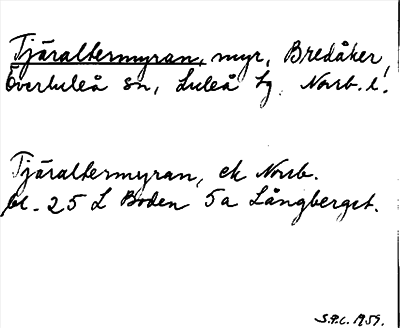 Tjäraltermyran, myr, Bredåker,
Överluleå sn, Luleå tg. Norrb. l.
Tjäraltermyran, ek Norrb.
bl. 25 L Boden 5a Långberget.
S.P.C. 1959.